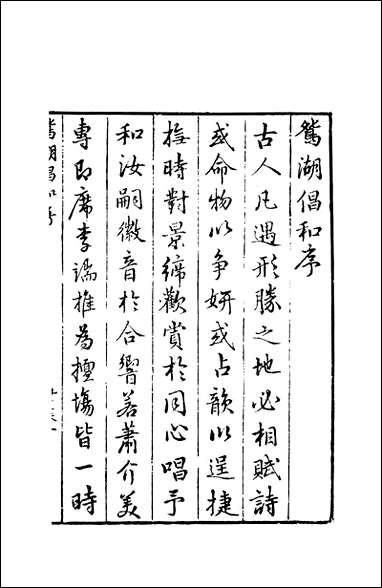 鴛湖倡和序
古人凡遇形勝之地必相賦詩
或命物以爭妍或占韻以逞捷
撫時對景締歡賞於同心唱予
和汝嗣徽音於合響若蕭介美
專即席李端推為擅場皆一時
鴛湖倡和序